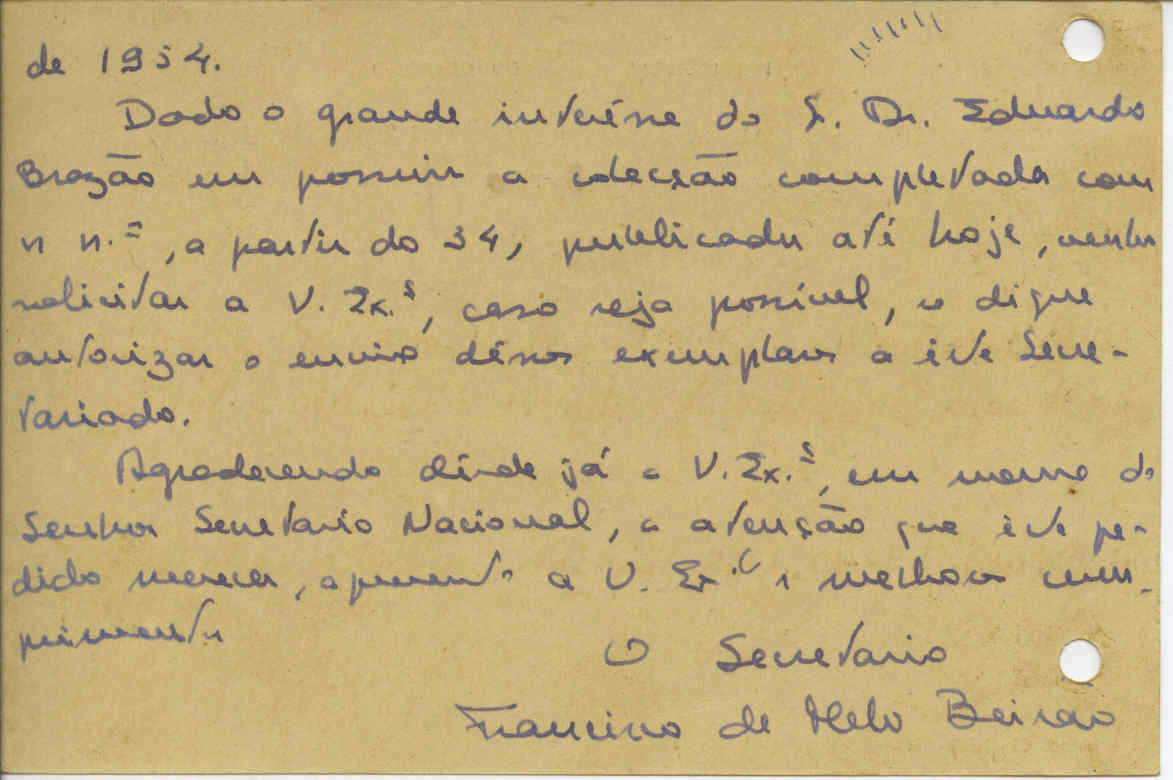 de 1954.
Dado o grande interêsse do S. Dr. Eduardo
Brazão em possuir a colecção completada com
os n.os, a partir do 34, publicados até hoje, venho
solicitar a V. Ex.ª, caso seja possível, se digne
autorizar o envio dêsses exemplares a êste Secre-
tariado.
Agradecendo desde já a V. Ex.ª, em nome do
Senhor Secretario Nacional, a atenção que êste pe-
dido merecer, apresento a V. Ex.ª os melhores cum-
primentos
O Secretario
Francisco de Melo Beirão